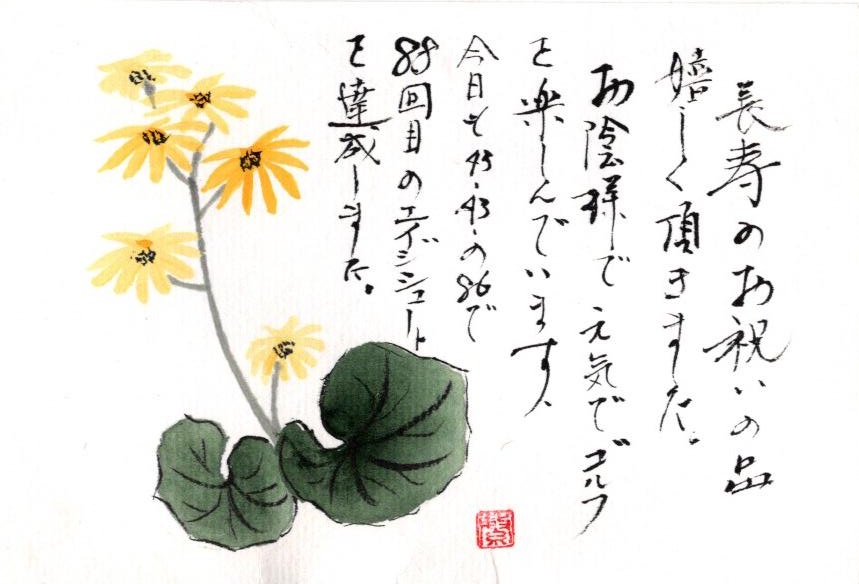 長寿のお祝いの品
嬉しく頂きました。
お陰様で元気でゴルフ
を楽しんでいます、
今日も45.43.の86で
88回目のエイジシュート
を達成しました。